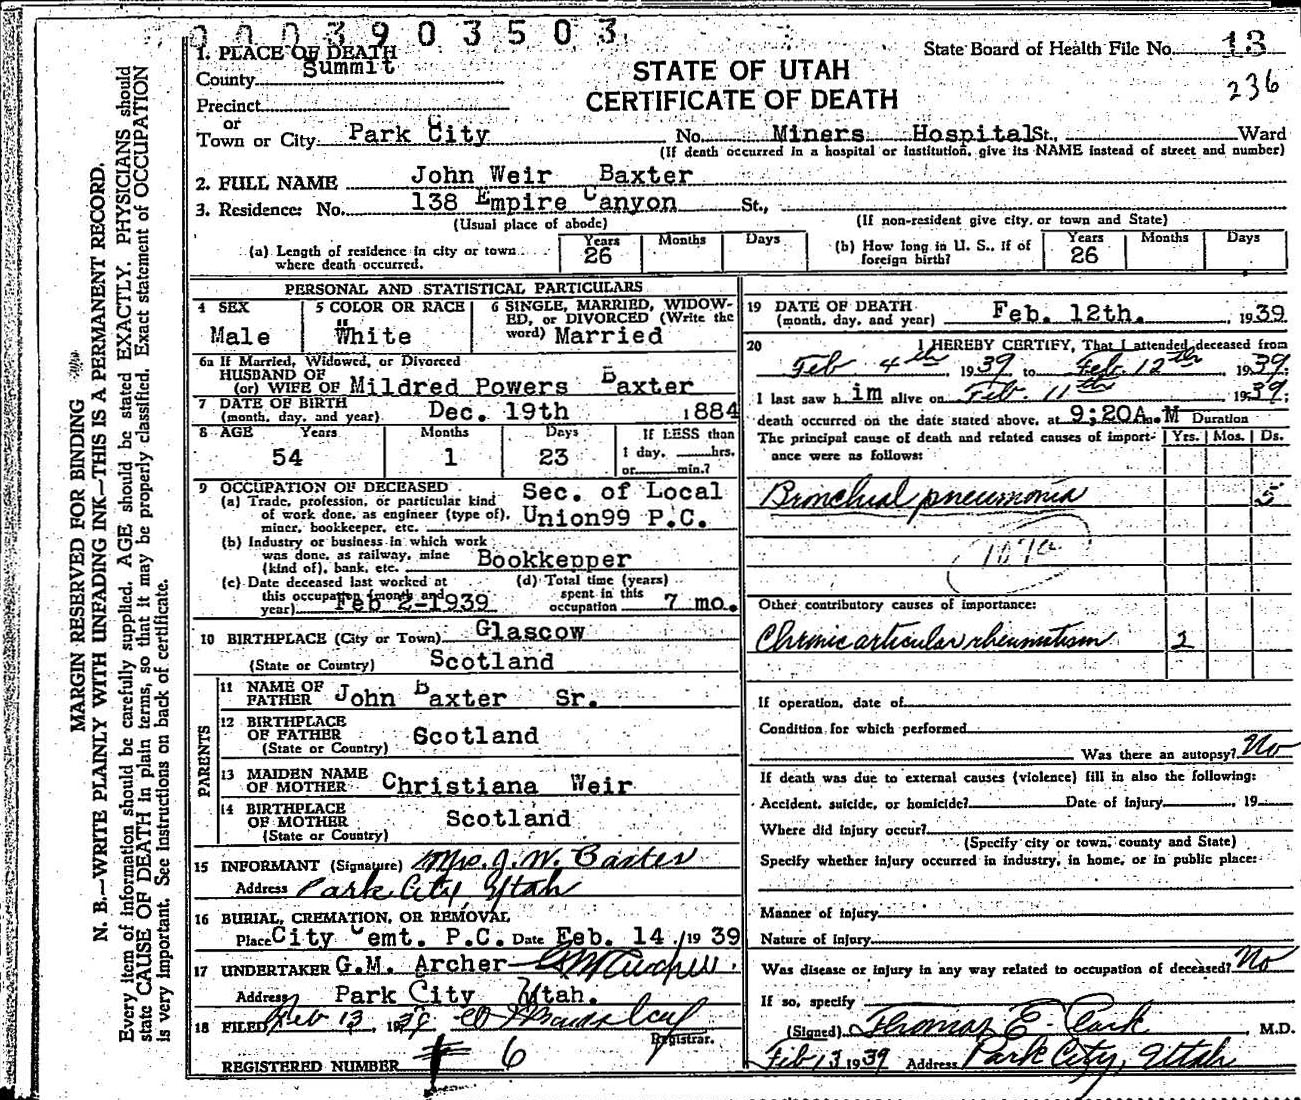 0003903503
1. PLACE OF DEATH
County Summit
State Board of Health File No. 13
236
STATE OF UTAH
CERTIFICATE OF DEATH
Precinct
or
Town or City Park City No. Miners Hospital St., Ward
(If death occurred in a hospital or institution, give its NAME instead of street and number)
2. FULL NAME John Weir Baxter
3. Residence: No. 138 Empire Canyon St.,
(Usual place of abode) (If non-resident give city, or town and State)
(a) Length of residence in city or town where death occurred. Years 26 Months Days
(b) How long in U. S., if of foreign birth? Years 26 Months Days
MARGIN RESERVED FOR BINDING
N. B.—WRITE PLAINLY WITH UNFADING INK—THIS IS A PERMANENT RECORD.
Every item of information should be carefully supplied. AGE should be stated EXACTLY. PHYSICIANS should
state CAUSE OF DEATH in plain terms, so that it may be properly classified. Exact statement of OCCUPATION
is very important. See instructions on back of certificate.
PERSONAL AND STATISTICAL PARTICULARS
4 SEX Male
5 COLOR OR RACE White
6 SINGLE, MARRIED, WIDOW-
ED, or DIVORCED (Write the
word) Married
6a If Married, Widowed, or Divorced
HUSBAND OF
(or) WIFE OF Mildred Powers Baxter
7 DATE OF BIRTH
(month, day, and year) Dec. 19th 1884
8 AGE Years 54 Months 1 Days 23 If LESS than
1 day, hrs.
or min.?
9 OCCUPATION OF DECEASED
(a) Trade, profession, or particular kind
of work done, as engineer (type of),
miner, bookkeeper, etc. Sec. of Local
Union99 P.C.
(b) Industry or business in which work
was done, as railway, mine
(kind of), bank, etc. Bookkepper
(c) Date deceased last worked at
this occupation (month and
year) Feb 2-1939
(d) Total time (years)
spent in this
occupation 7 mo.
10 BIRTHPLACE (City or Town) Glascow
(State or Country) Scotland
PARENTS
11 NAME OF
FATHER John Baxter Sr.
12 BIRTHPLACE
OF FATHER
(State or Country) Scotland
13 MAIDEN NAME
OF MOTHER Christiana Weir
14 BIRTHPLACE
OF MOTHER
(State or Country) Scotland
15 INFORMANT (Signature) Mrs. J. W. Baxter
Address Park City, Utah
16 BURIAL, CREMATION, OR REMOVAL
Place City Cemt. P.C. Date Feb. 14 / 19 39
17 UNDERTAKER G.M. Archer— GM Archer.
Address Park City Utah.
18 FILED Feb 13, 1939
Registrar.
REGISTERED NUMBER 6
19 DATE OF DEATH
(month, day, and year) Feb. 12th. , 1939
20 I HEREBY CERTIFY, That I attended deceased from
Feb 4th 1939 to Feb. 12th 1939;
I last saw him alive on Feb. 11th 1939;
death occurred on the date stated above, at 9;20A.m. M Duration
The principal cause of death and related causes of import- Yrs. Mos. Ds.
ance were as follows:
Bronchial pneumonia 5
107a
Other contributory causes of importance:
Chronic articular rheumatism 2
If operation, date of
Condition for which performed
Was there an autopsy? No
If death was due to external causes (violence) fill in also the following:
Accident, suicide, or homicide? Date of injury , 19
Where did injury occur?
(Specify city or town, county and State)
Specify whether injury occurred in industry, in home, or in public place:
Manner of injury
Nature of injury
Was disease or injury in any way related to occupation of deceased? No
If so, specify
(Signed) Thomas E. Clark , M.D.
Feb 13 1939 Address Park City, Utah